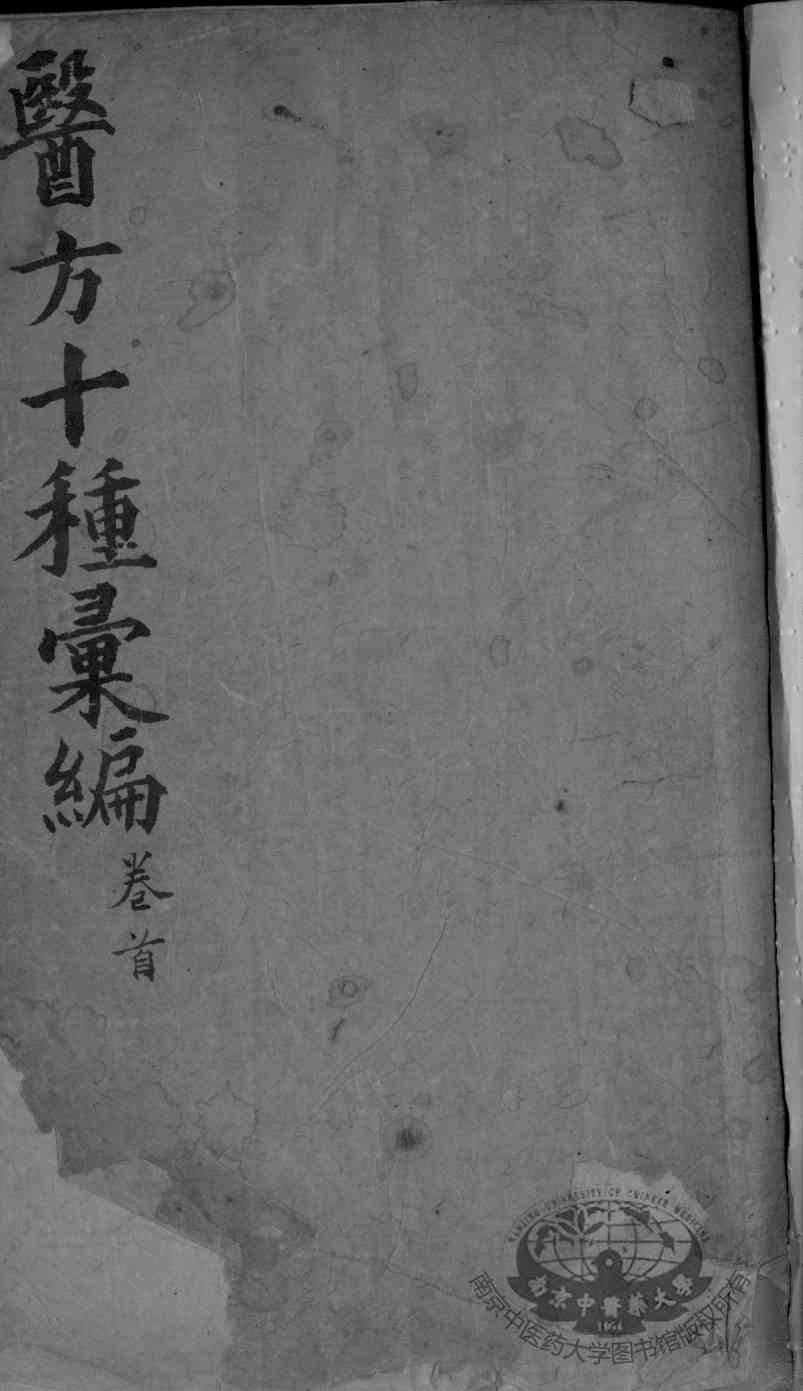 醫方十種彙編
卷首
NANJING UNIVERSITY OF CHINESE MEDICINE
南京中醫藥大學
1954
南京中医药大学图书馆版权所有